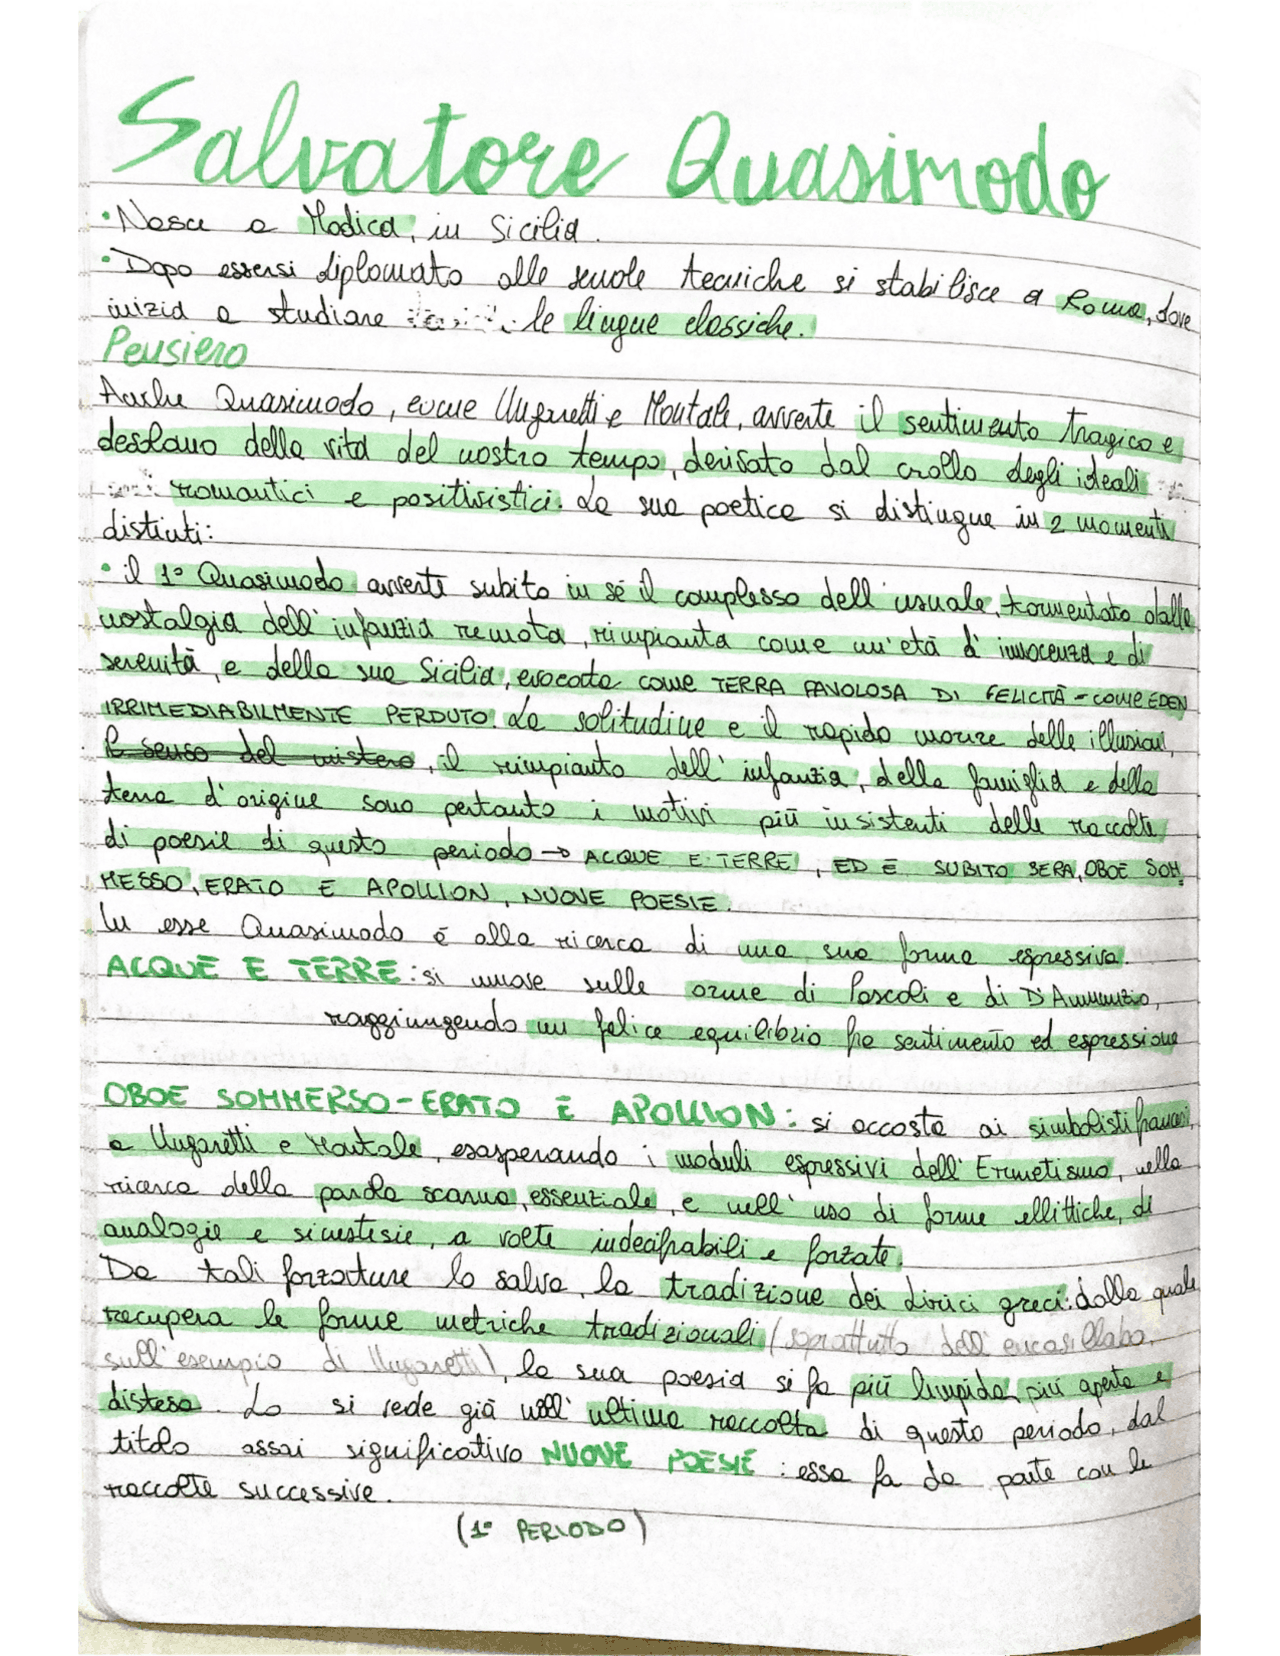 Salvatore Quasimodo
• Nasce a Modica, in Sicilia.
• Dopo essersi diplomato alle scuole tecniche si stabilisce a Roma, dove
inizia a studiare le lingue classiche.
Pensiero
Anche Quasimodo, come Ungaretti e Montale, avverte il sentimento tragico e
desolano della vita del nostro tempo, derivato dal crollo degli ideali
romantici e positivistici. La sua poetica si distingue in 2 momenti
distinti:
• il 1° Quasimodo avverte subito in sé il complesso dell'usuale, tormentato dalla
nostalgia dell'infanzia remota, rimpianta come un'età d'innocenza e di
serenità, e della sua Sicilia, evocata come TERRA FAVOLOSA DI FELICITÀ - COME EDEN
IRRIMEDIABILMENTE PERDUTO. La solitudine e il rapido morire delle illusioni,
il senso del mistero, il rimpianto dell'infanzia, della famiglia e della
terra d'origine sono pertanto i motivi più insistenti delle raccolte
di poesie di questo periodo → ACQUE E TERRE, ED È SUBITO SERA, OBOE SOM
MESSO, ERATO E APOLLION, NUOVE POESIE.
In esse Quasimodo è alla ricerca di una sua forma espressiva.
ACQUE E TERRE: si muove sulle orme di Pascoli e di D'Annunzio,
raggiungendo un felice equilibrio fra sentimento ed espressione
OBOE SOMMERSO - ERATO E APOLLION: si accosta ai simbolisti francesi,
a Ungaretti e Montale, esasperando i moduli espressivi dell'Ermetismo, nella
ricerca della parola scarna, essenziale, e nell'uso di forme ellittiche, di
analogie e sinestesie, a volte indecifrabili e forzate.
Da tali forzature lo salva, la tradizione dei lirici greci: dalla quale
recupera le forme metriche tradizionali (soprattutto dell'encasillabo,
sull'esempio di Ungaretti), la sua poesia si fa più limpida, più aperta e
distesa. Lo si vede già nell'ultima raccolta di questo periodo, dal
titolo assai significativo NUOVE POESIE: essa fa da ponte con le
raccolte successive.
(1° PERIODO)